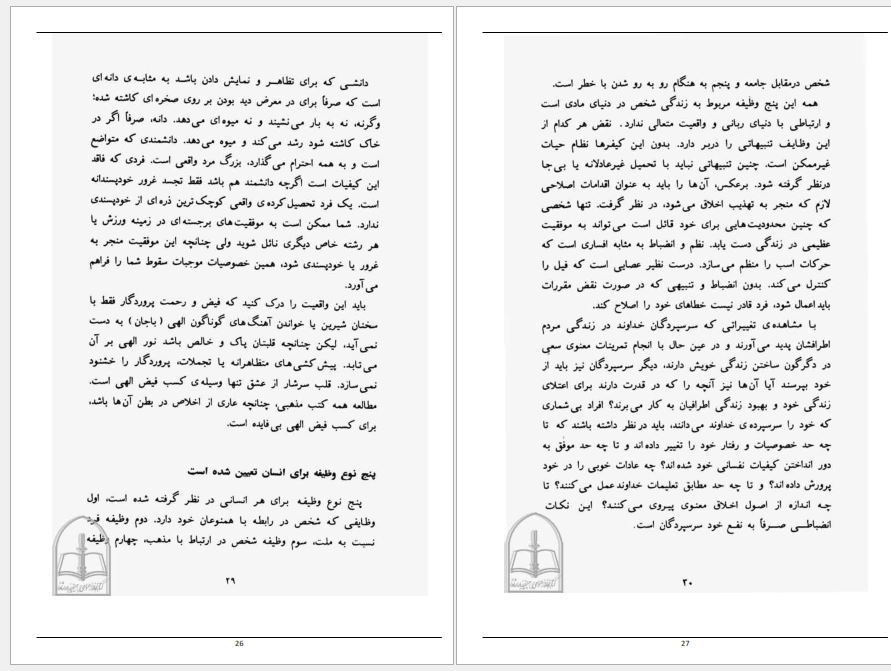 دانشی که برای تظاهر و نمایش دادن باشد به مثابه‌ی دانه‌ای
است که صرفاً برای در معرض دید بودن بر روی صخره‌ای کاشته شده؛
وگرنه، نه به بار می‌نشیند و نه میوه‌ای می‌دهد. دانه، صرفاً اگر در
خاک کاشته شود رشد می‌کند و میوه می‌دهد. دانشمندی که متواضع
است و به همه احترام می‌گذارد، بزرگ مرد واقعی است. فردی که فاقد
این کیفیات است اگرچه دانشمند هم باشد فقط تجسد غرور خودپسندانه
است. یک فرد تحصیل‌کرده‌ی واقعی کوچک‌ترین ذره‌ای از خودپسندی
ندارد. شما ممکن است به موفقیت‌های برجسته‌ای در زمینه ورزش یا
هر رشته خاص دیگری نائل شوید ولی چنانچه این موفقیت منجر به
غرور یا خودپسندی شود، همین خصوصیات موجبات سقوط شما را فراهم
می‌آورد.
باید این واقعیت را درک کنید که فیض و رحمت پروردگار فقط با
سخنان شیرین یا خواندن آهنگ‌های گوناگون الهی (باجان) به دست
نمی‌آید، لیکن چنانچه قلبتان پاک و خالص باشد نور الهی بر آن
می‌تابد. پیش‌کشی‌های متظاهرانه یا تجملات، پروردگار را خشنود
نمی‌سازد. قلب سرشار از عشق تنها وسیله‌ی کسب فیض الهی است.
مطالعه همه کتب مذهبی، چنانچه عاری از اخلاص در بطن آن‌ها باشد،
برای کسب فیض الهی بی‌فایده است.
پنج نوع وظیفه برای انسان تعیین شده است
پنج نوع وظیفه برای هر انسانی در نظر گرفته شده است، اول
وظایفی که شخص در رابطه با همنوعان خود دارد. دوم وظیفه فرد
نسبت به ملت، سوم وظیفه شخص در ارتباط با مذهب، چهارم وظیفه
۲۹
26
شخص درمقابل جامعه و پنجم به هنگام رو به رو شدن با خطر است.
همه این پنج وظیفه مربوط به زندگی شخص در دنیای مادی است
و ارتباطی با دنیای ربانی و واقعیت متعالی ندارد. نقض هر کدام از
این وظایف تنبیهاتی را دربر دارد. بدون این کیفرها نظام حیات
غیرممکن است. چنین تنبیهاتی نباید با تحمیل غیرعادلانه یا بی‌جا
درنظر گرفته شود. برعکس، آن‌ها را باید به عنوان اقدامات اصلاحی
لازم که منجر به تهذیب اخلاق می‌شود، در نظر گرفت. تنها شخصی
که چنین محدودیت‌هایی برای خود قائل است می‌تواند به موفقیت
عظیمی در زندگی دست یابد. نظم و انضباط به مثابه افساری است که
حرکات اسب را منظم می‌سازد. درست نظیر عصایی است که فیل را
کنترل می‌کند. بدون انضباط و تنبیهی که در صورت نقض مقررات
باید اعمال شود، فرد قادر نیست خطاهای خود را اصلاح کند.
با مشاهده‌ی تغییراتی که سرسپردگان خداوند در زندگی مردم
اطرافشان پدید می‌آورند و در عین حال با انجام تمرینات معنوی سعی
در دگرگون ساختن زندگی خویش دارند، دیگر سرسپردگان نیز باید از
خود بپرسند آیا آن‌ها نیز آنچه را که در قدرت دارند برای اعتلای
زندگی خود و بهبود زندگی اطرافیان به کار می‌برند؟ افراد بی‌شماری
که خود را سرسپرده‌ی خداوند می‌دانند، باید درنظر داشته باشند که تا
چه حد خصوصیات و رفتار خود را تغییر داده‌اند و تا چه حد موفق به
دور انداختن کیفیات نفسانی خود شده‌اند؟ چه عادات خوبی را در خود
پرورش داده‌اند؟ و تا چه حد مطابق تعلیمات خداوند عمل می‌کنند؟ تا
چه اندازه از اصول اخلاق معنوی پیروی می‌کنند؟ این نکات
انضباطی صرفاً به نفع خود سرسپردگان است.
۳۰
27